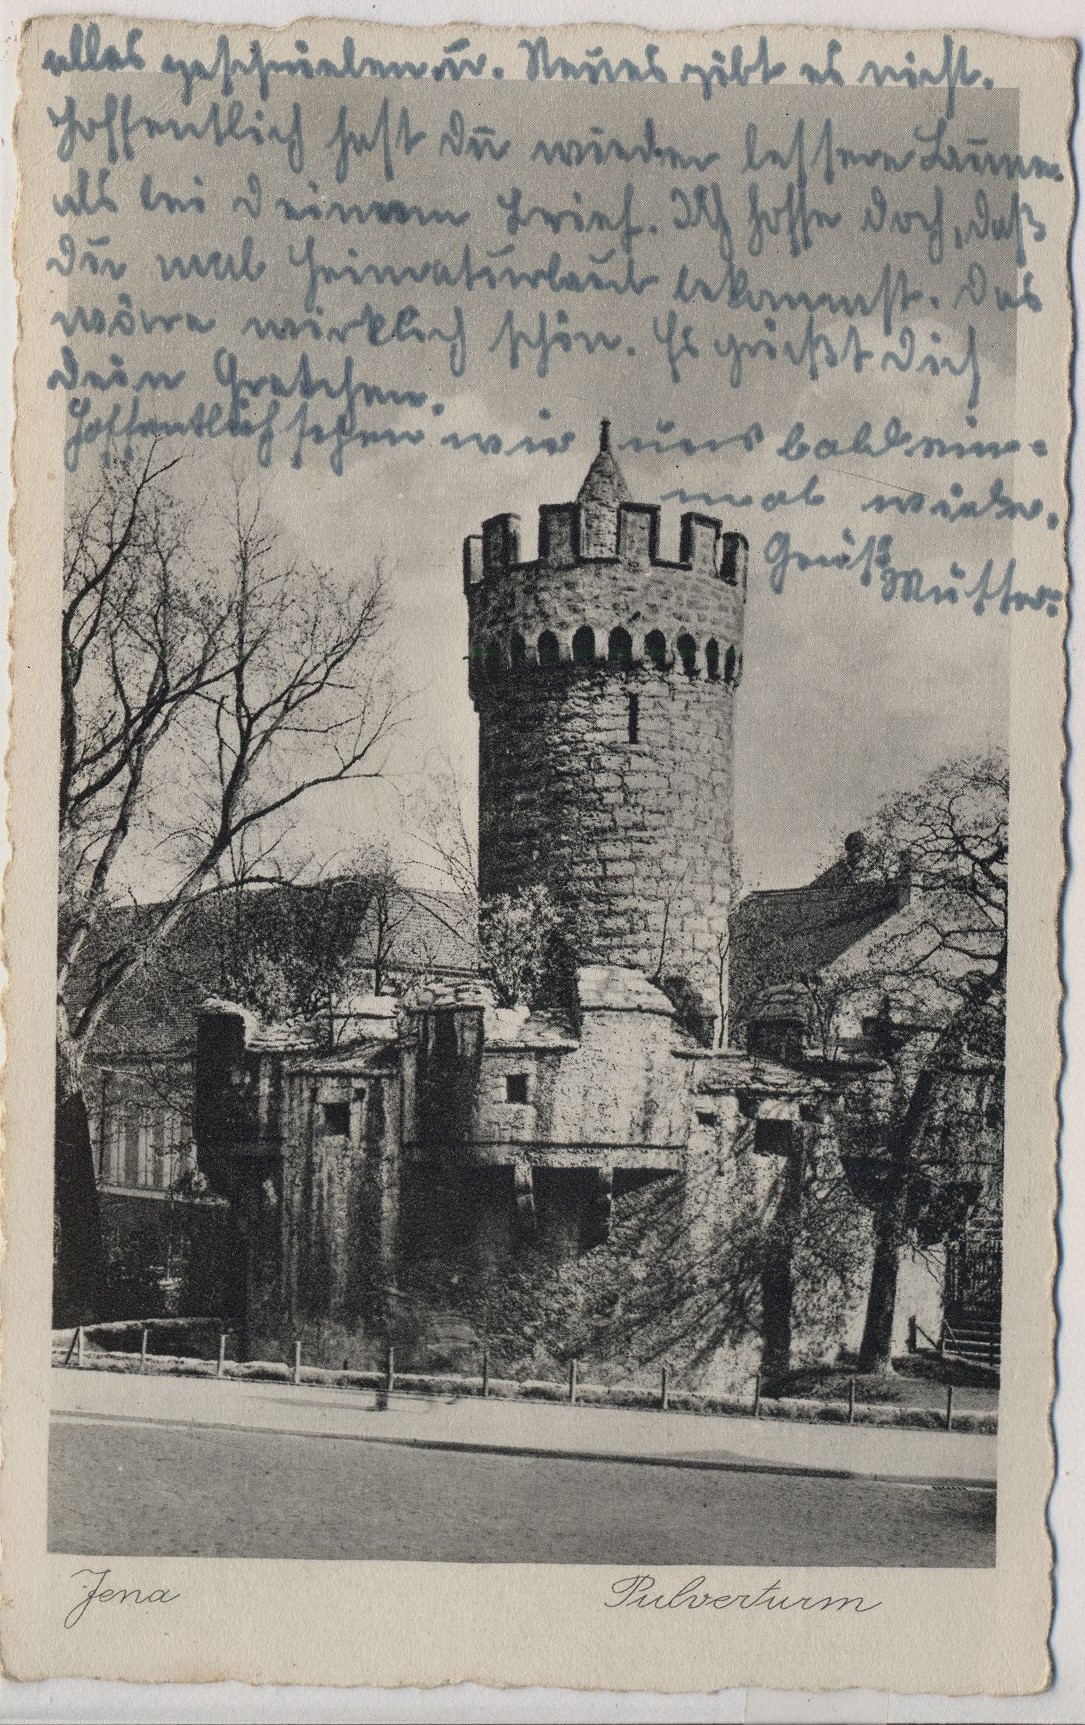 alles geschrieben. Neues gibt es nicht.
Hoffentlich hast du wieder bessere Laune
als bei Deinem Brief. Ich hoffe doch, daß
du mal Heimaturlaub bekommst. Das
wäre wirklich schön. Es grüßt Dich
dein Gretchen.
Hoffentlich sehen wir uns bald ein-
mal wieder.
Gruß
Mutter.
Jena
Pulverturm